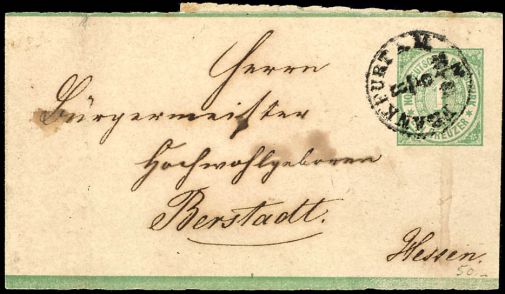 Herrn
Bürgermeister
Hochwohlgeboren
Berstadt.
Hessen.
50.-
FRANKFURT A. M.
KREUZER